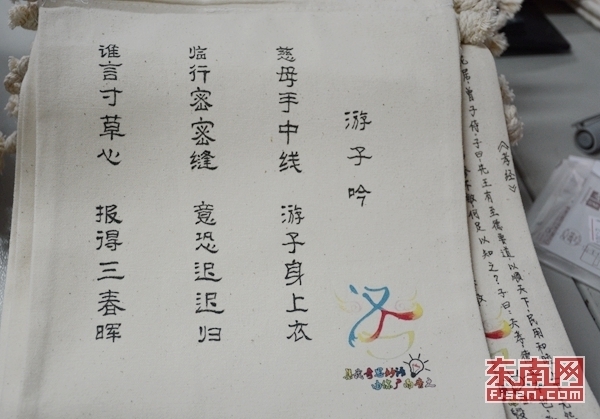 游子吟
慈母手中线 游子身上衣
临行密密缝 意恐迟迟归
谁言寸草心 报得三春晖
《孝经》
曾子侍,子曰:先王有至德要道,以顺天下,民用和
敏何足以知之?子曰:夫孝
东南网
FJSEN.COM